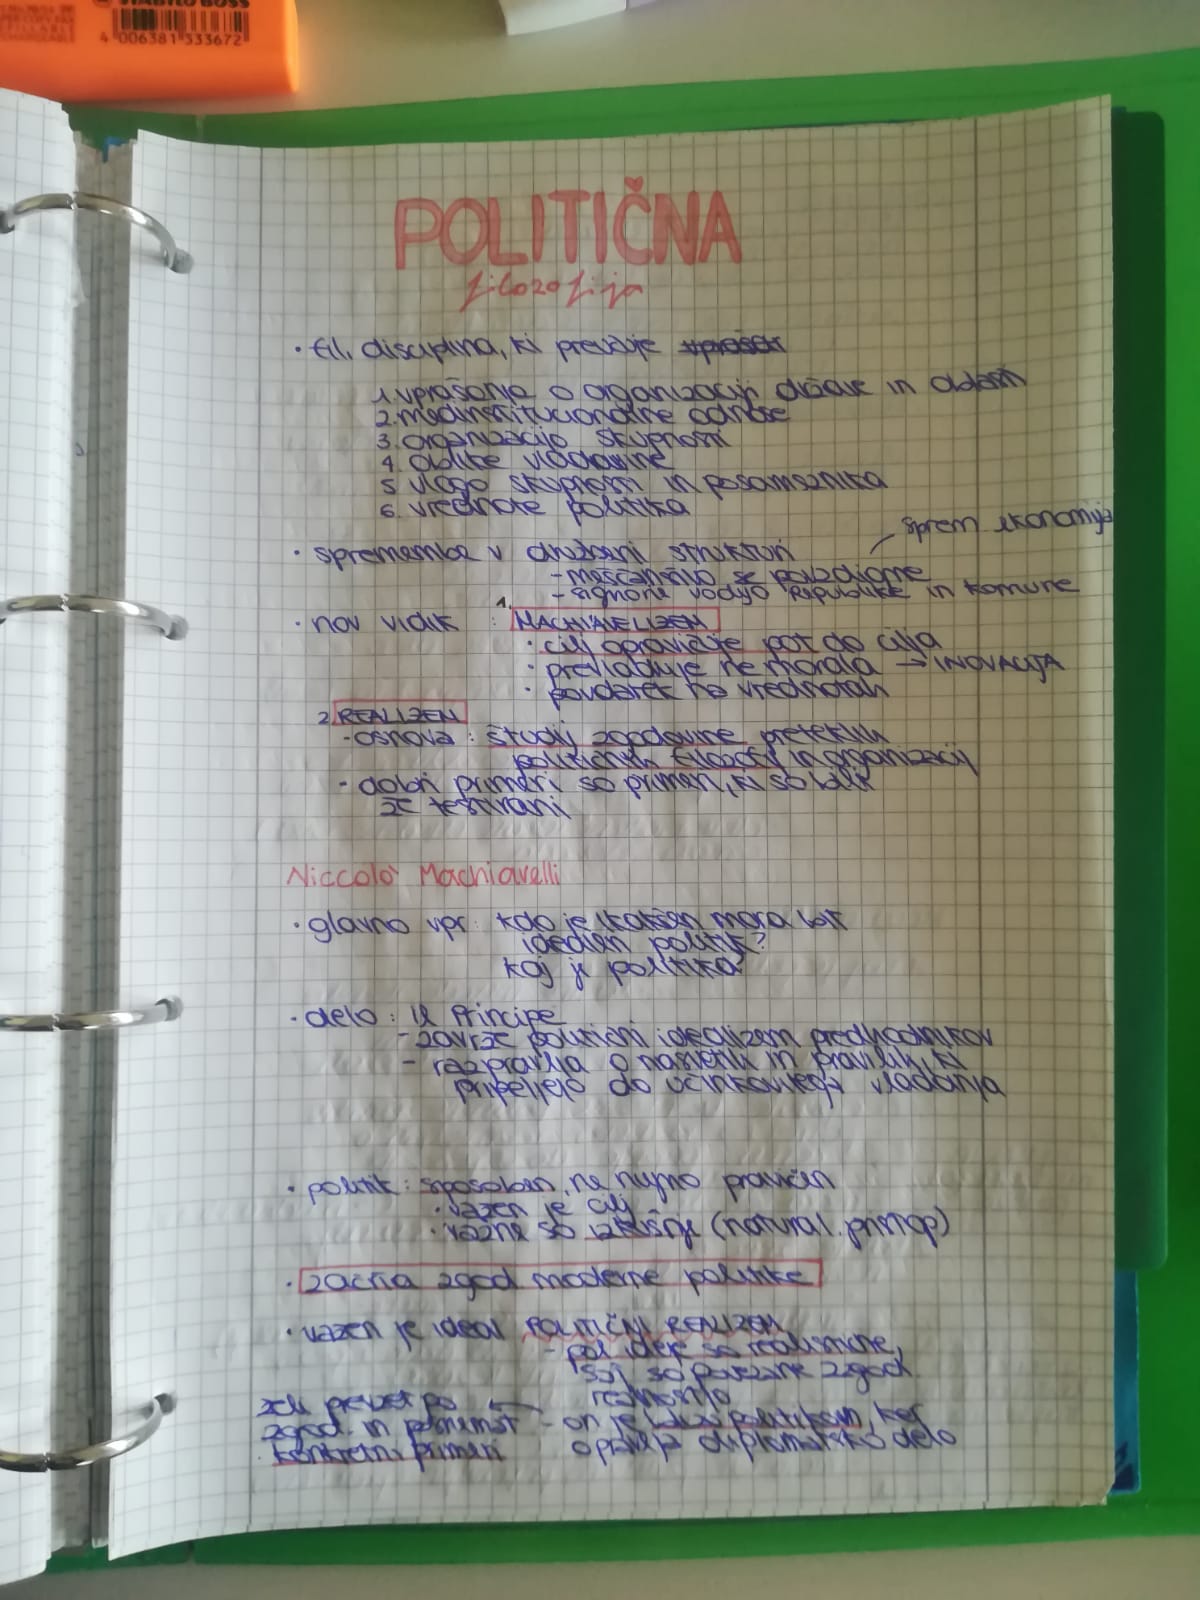 STABILO BOSS
4 006381 333672
POLITIČNA
filozofija
· fil. disciplina, ki preučuje
1. vprašanja o organizaciji države in oblasti
2. medinstitucionalne odnose
3. organizacijo skupnosti
4. oblike vladavine
5. vlogo skupnosti in posameznika
6. vrednote politika
sprem. ekonomije
· sprememba v družbeni strukturi
- meščanstvo se povzdigne
- signorie vodijo republike in komune
· nov vidik : 1. MACHIAVELIZEM
· cilj opravičuje pot do cilja
· prevladuje ne morala → INOVACIJA
· povdarek na vrednotah
2. REALIZEM
- osnova : študij zgodovine preteklih
političnih filozofij in organizacij
- dobri primeri so primeri, ki so bili
že testirani
Niccolò Machiavelli
· glavno vpr: kdo je / kakšen mora bit
idealen politik?
kaj je politika?
· delo : Il Principe
- zavrže politični idealizem predhodnikov
- razpravlja o nasvetih in pravilih, ki
pripeljejo do učinkovitega vladanja
· politik : sposoben, ne nujno pravičen
· važen je cilj
· važne so izkušnje (natural. pristop)
· začna zgod moderne politike
· važen je ideal POLITIČNI REALIZEM
- pol ideje so realistične,
saj so povezane z zgod
resničnostjo
želi preverit po
zgod. in posnemat
konkretni primeri
- on je blizu politikom, ker
opravlja diplomatsko delo